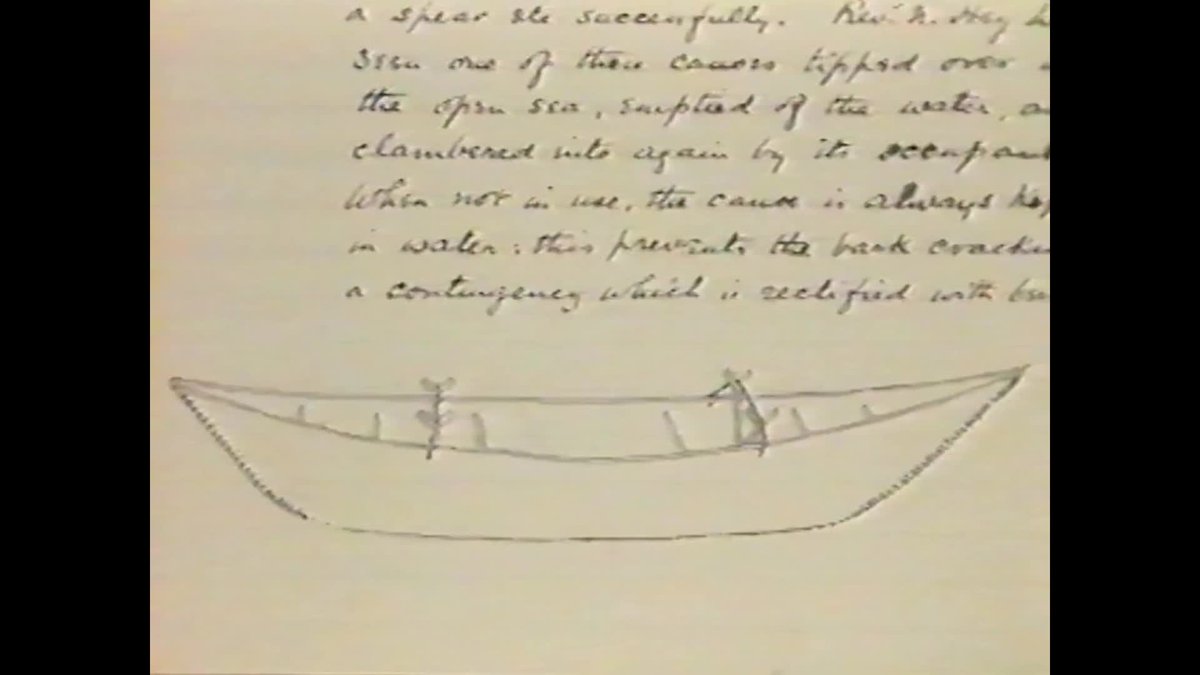 a spear etc successfully. Rev. N. Hey h
seen one of these canoes tipped over
the open sea, emptied of the water, a
clambered into again by its occupant
When not in use, the canoe is always kep
in water: this prevents the bark crackin
a contingency which is rectified with